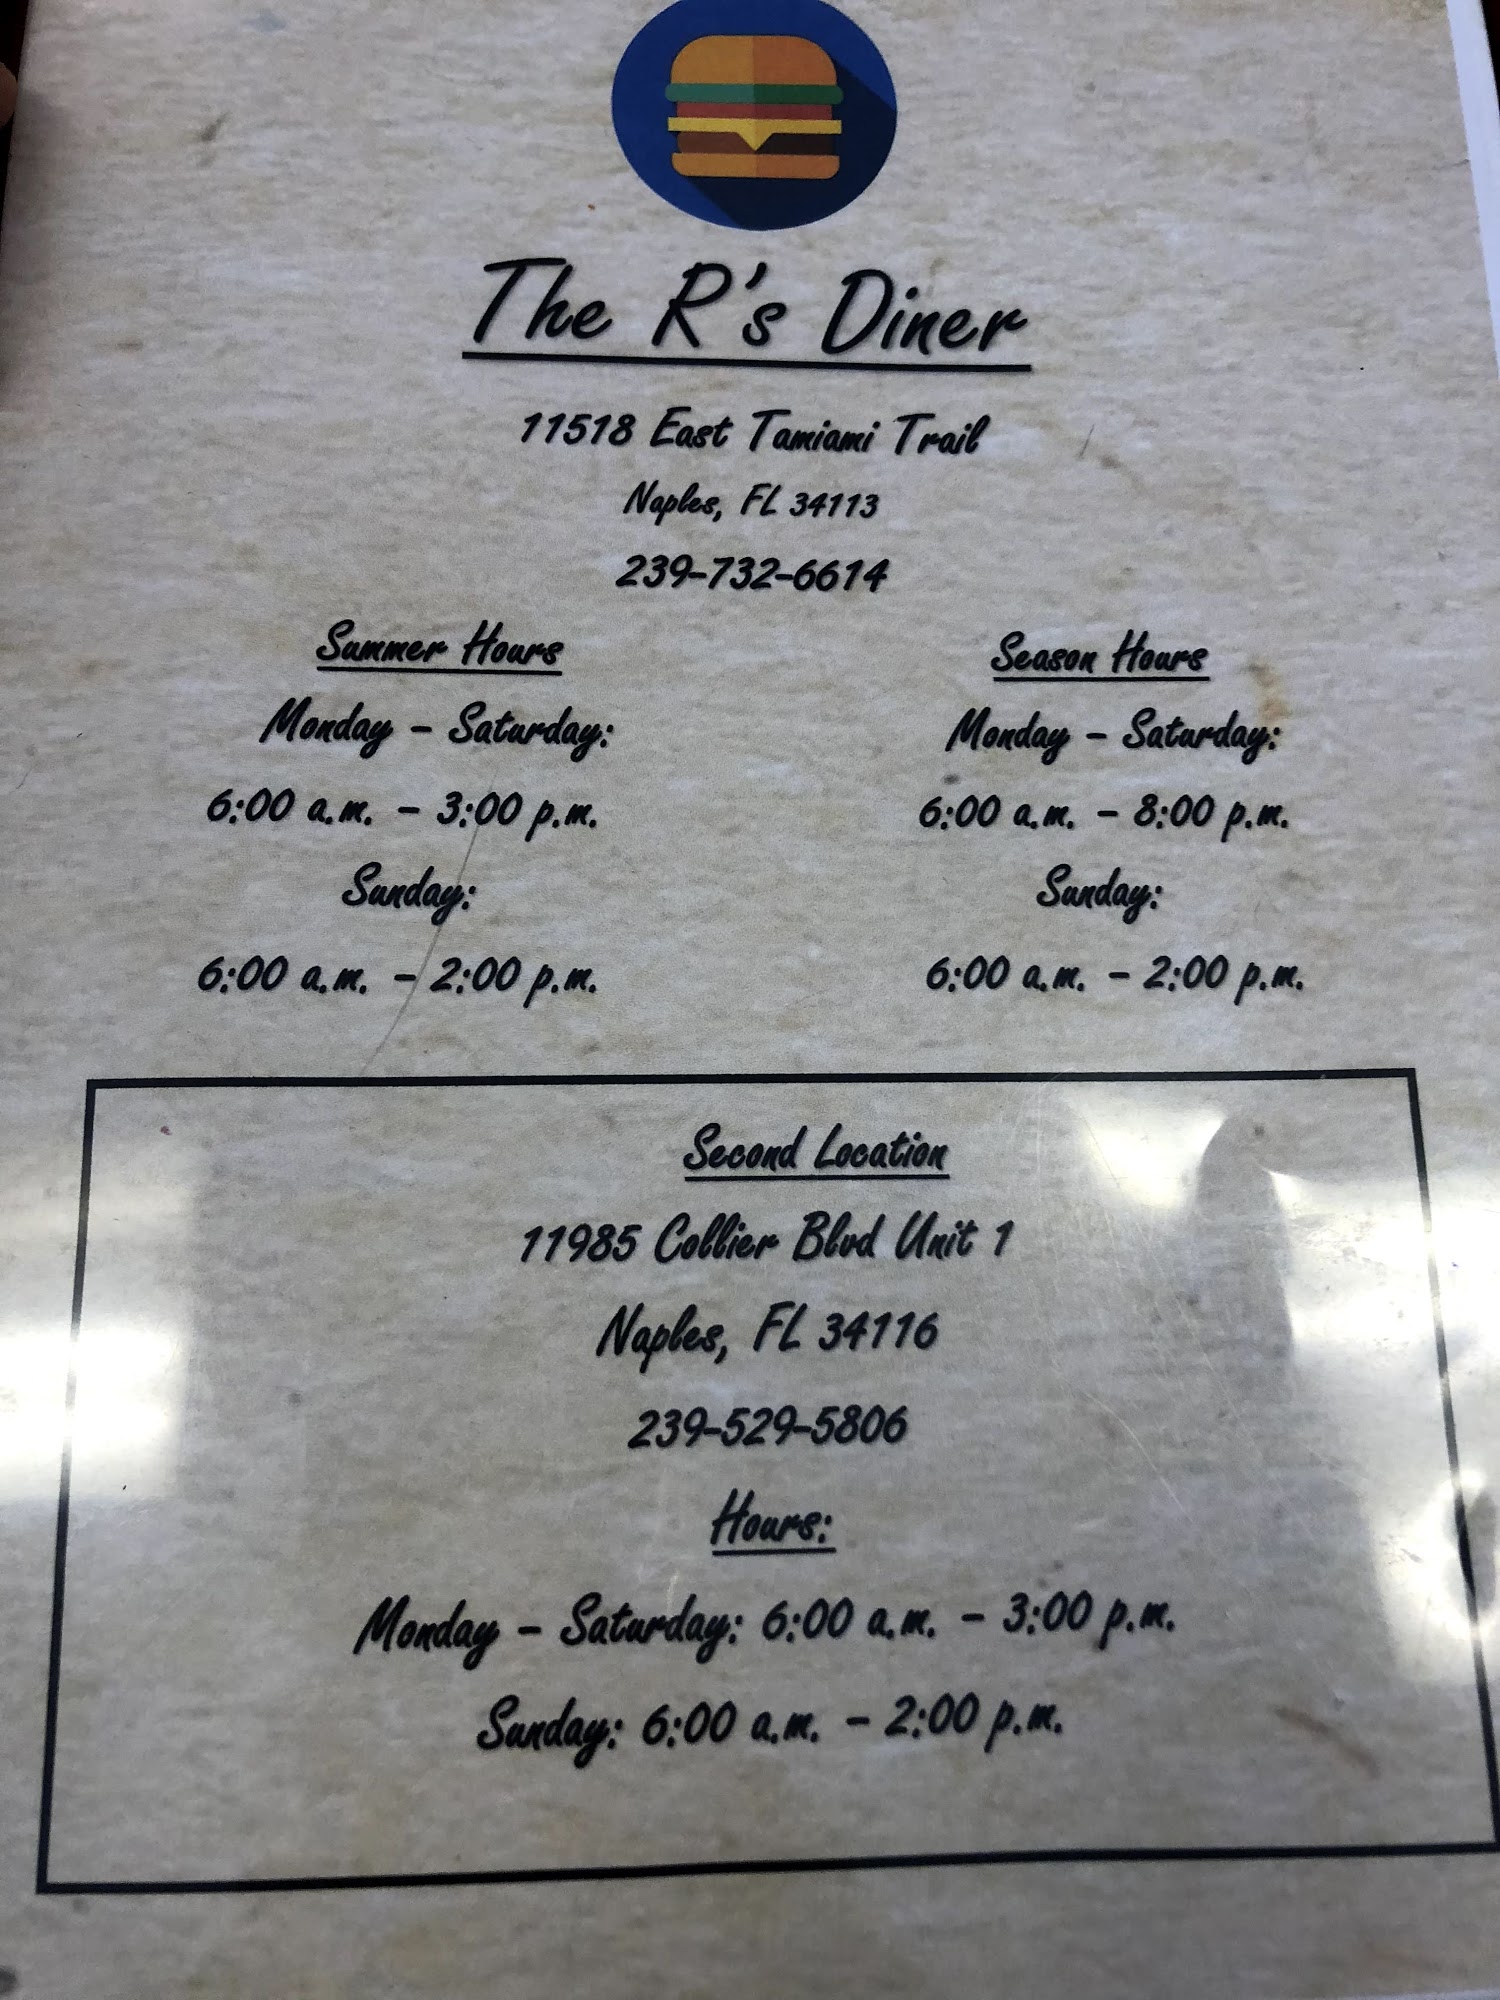 The R's Diner
11518 East Tamiami Trail
Naples, FL 34113
239-732-6614
Summer Hours
Monday - Saturday:
6:00 a.m. - 3:00 p.m.
Sunday:
6:00 a.m. - 2:00 p.m.
Season Hours
Monday - Saturday:
6:00 a.m. - 8:00 p.m.
Sunday:
6:00 a.m. - 2:00 p.m.
Second Location
11985 Collier Blvd Unit 1
Naples, FL 34116
239-529-5806
Hours:
Monday - Saturday: 6:00 a.m. - 3:00 p.m.
Sunday: 6:00 a.m. - 2:00 p.m.